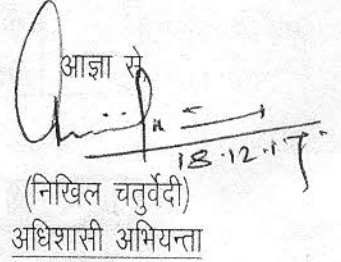 आज्ञा से,
18.12.17
(निखिल चतुर्वेदी)
अधिशासी अभियन्ता